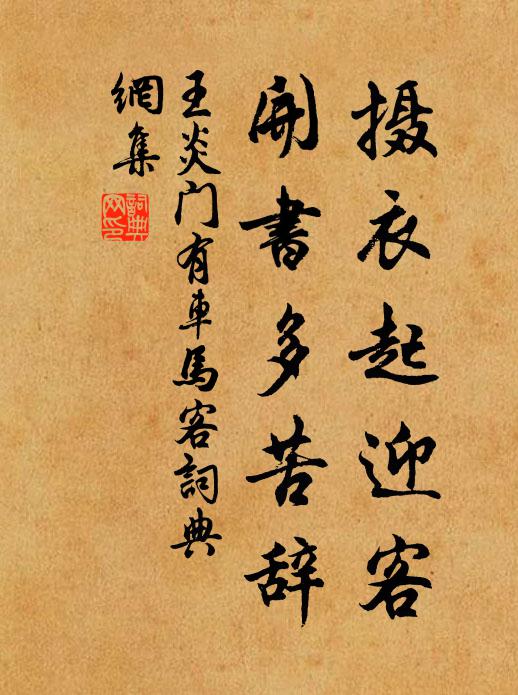 摄衣起迎客
開書多苦辞
王炎门有車馬客詞典
網集
詞典网印